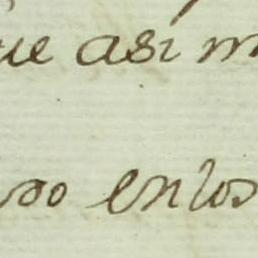 ue asi m
so enlos